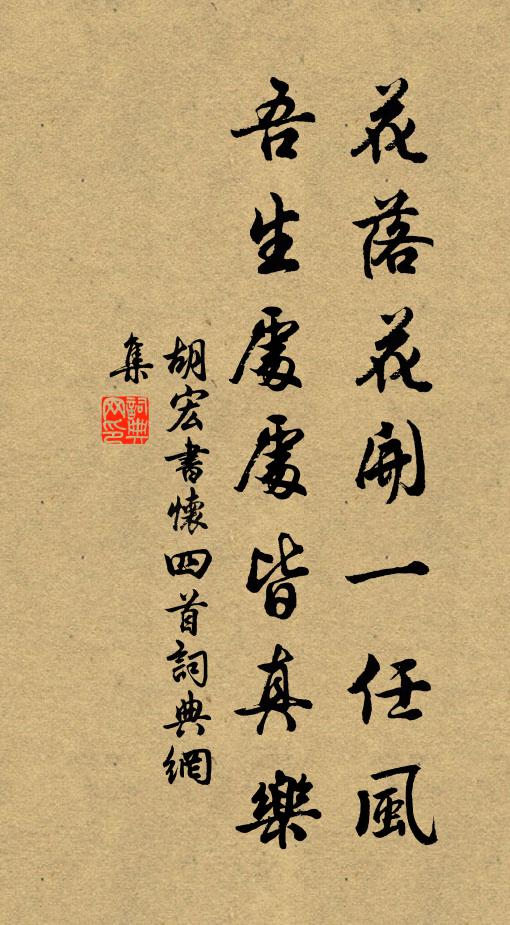 花落花開一任風
吾生處處皆真樂
胡宏書懷四首詞典網
集
詞典網印